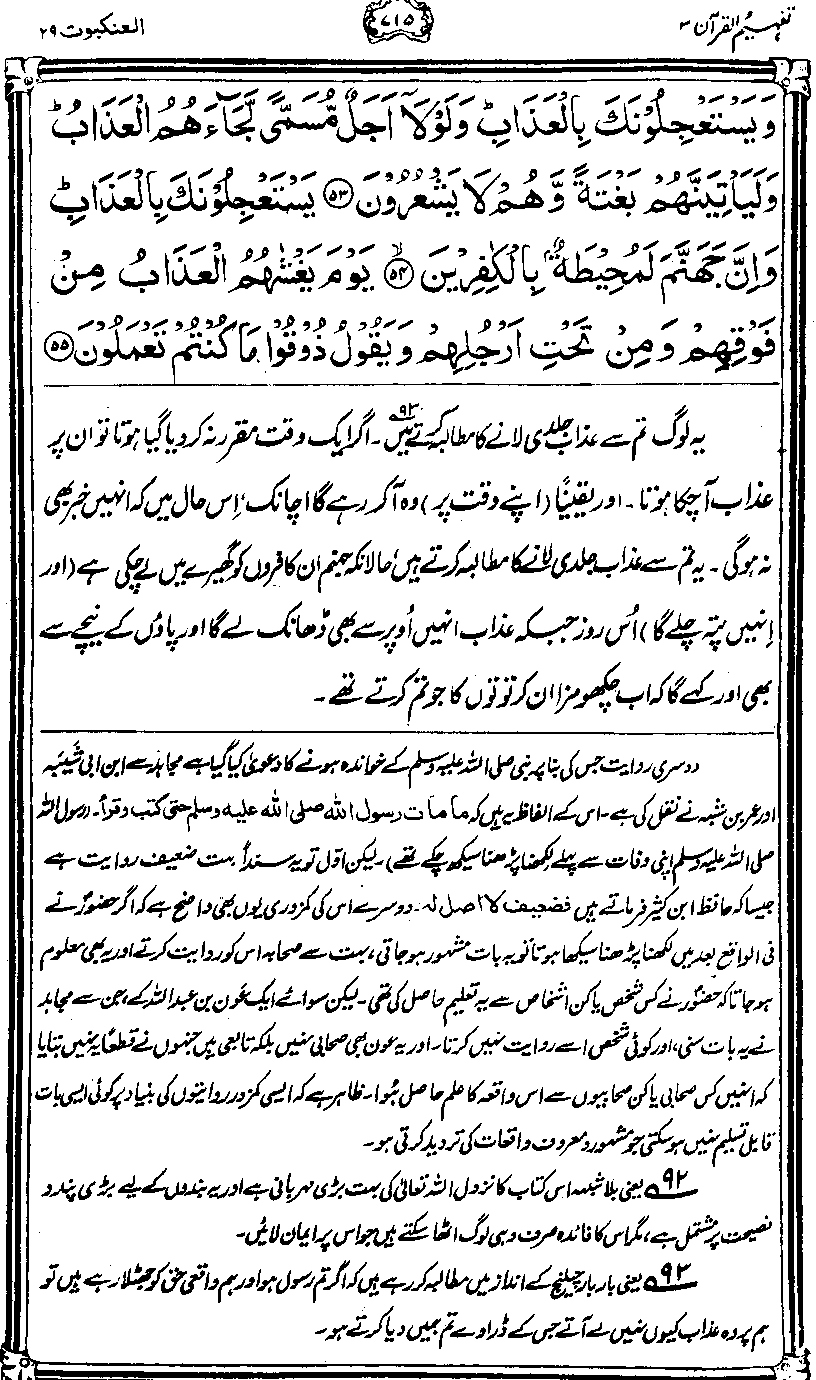 تفہیم القرآن ۳
۷۱۵
العنکبوت ۲۹
وَيَسْتَعْجِلُوْنَكَ بِالْعَذَابِ ؕ وَلَوْلَاۤ اَجَلٌ مُّسَمًّى لَّجَآءَهُمُ الْعَذَابُ ؕ
وَلَيَاْتِيَنَّهُمْ بَغْتَةً وَّهُمْ لَا يَشْعُرُوْنَ ﴿۵۳﴾ يَسْتَعْجِلُوْنَكَ بِالْعَذَابِ ؕ
وَاِنَّ جَهَنَّمَ لَمُحِيْطَةٌۢ بِالْكٰفِرِيْنَ ۙ﴿۵۴﴾ يَوْمَ يَغْشٰىهُمُ الْعَذَابُ مِنْ
فَوْقِهِمْ وَمِنْ تَحْتِ اَرْجُلِهِمْ وَيَقُوْلُ ذُوْقُوْا مَا كُنْتُمْ تَعْمَلُوْنَ ﴿۵۵﴾
یہ لوگ تم سے عذاب جلدی لانے کا مطالبہ کرتے ہیں۹۳۔ اگر ایک وقت مقرر نہ کر دیا گیا ہوتا تو ان پر
عذاب آچکا ہوتا۔ اور یقیناً (اپنے وقت پر) وہ آکر رہے گا اچانک، اِس حال میں کہ انہیں خبر بھی
نہ ہوگی۔ یہ تم سے عذاب جلدی لانے کا مطالبہ کرتے ہیں، حالانکہ جہنم ان کافروں کو گھیرے میں لے چکی ہے (اور
اِنہیں پتہ چلے گا) اُس روز جبکہ عذاب انہیں اُوپر سے بھی ڈھانک لے گا اور پاؤں کے نیچے سے
بھی اور کہے گا کہ اب چکھو مزا ان کرتوتوں کا جو تم کرتے تھے۔
دوسری روایت جس کی بنا پر نبی صلی اللہ علیہ وسلم کے خواندہ ہونے کا دعویٰ کیا گیا ہے مجاہد سے ابن ابی شیبہ
اور عمر بن شبہ نے نقل کی ہے۔ اس کے الفاظ یہ ہیں کہ ما مات رسول الله صلى الله عليه وسلم حتى كتب وقرأ۔ (رسول اللہ
صلی اللہ علیہ وسلم اپنی وفات سے پہلے لکھنا پڑھنا سیکھ چکے تھے)۔ لیکن اوّل تو یہ سنداً بہت ضعیف روایت ہے
جیسا کہ حافظ ابن کثیر فرماتے ہیں فضعيف لا اصل له۔ دوسرے اس کی کمزوری یوں بھی واضح ہے کہ اگر حضورؐ نے
فی الواقع بعد میں لکھنا پڑھنا سیکھا ہوتا تو یہ بات مشہور ہو جاتی، بہت سے صحابہ اس کو روایت کرتے اور یہ بھی معلوم
ہو جاتا کہ حضورؐ نے کس شخص یا کن اشخاص سے یہ تعلیم حاصل کی تھی۔ لیکن سوائے ایک عون بن عبداللہ کے، جن سے مجاہد
نے یہ بات سنی، اور کوئی شخص اسے روایت نہیں کرتا۔ اور یہ عون بھی صحابی نہیں بلکہ تابعی ہیں جنہوں نے قطعاً یہ نہیں بتایا
کہ انہیں کس صحابی یا کن صحابیوں سے اس واقعہ کا علم حاصل ہُوا۔ ظاہر ہے کہ ایسی کمزور روایتوں کی بنیاد پر کوئی ایسی بات
قابلِ تسلیم نہیں ہوسکتی جو مشہور و معروف واقعات کی تردید کرتی ہو۔
۹۲ یعنی بلاشبہ اس کتاب کا نزول اللہ تعالیٰ کی بہت بڑی مہربانی ہے اور یہ بندوں کے لیے بڑی پند و
نصیحت پر مشتمل ہے، مگر اس کا فائدہ صرف وہی لوگ اٹھا سکتے ہیں جو اس پر ایمان لائیں۔
۹۳ یعنی بار بار چیلنج کے انداز میں مطالبہ کر رہے ہیں کہ اگر تم رسول ہو اور ہم واقعی حق کو جھٹلا رہے ہیں تو
ہم پر وہ عذاب کیوں نہیں لے آتے جس کے ڈراوے تم ہمیں دیا کرتے ہو۔